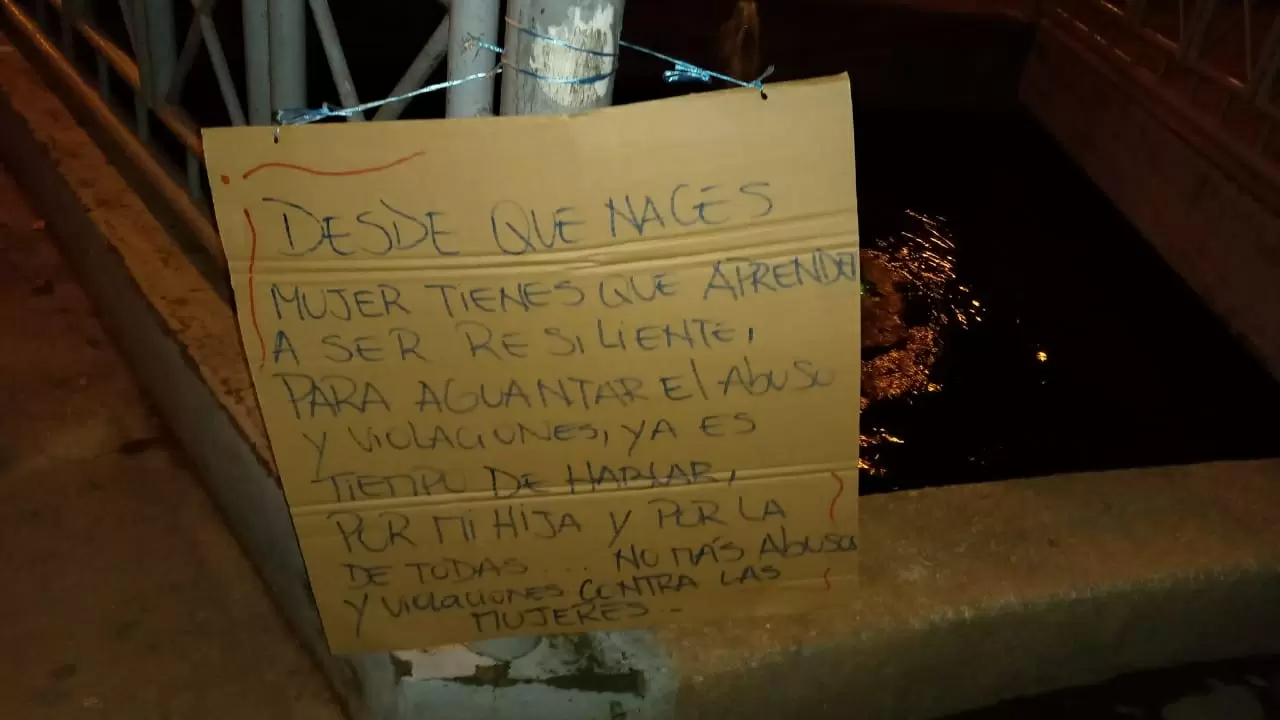 DESDE QUE NACES
MUJER TIENES QUE APRENDER
A SER RESILIENTE,
PARA AGUANTAR El Abuso
Y VIOLACIONES, YA ES
TIEMPO DE HABLAR,
POR MI HIJA Y POR LA
DE TODAS... NO MÁS Abusos
Y VIOLACIONES CONTRA LAS
MUJERES...